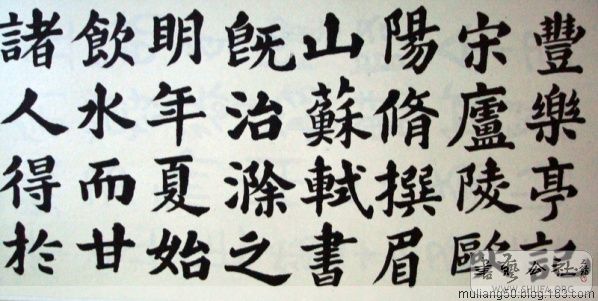 豐樂亭記
宋廬陵歐
陽脩撰眉
山蘇軾書
既治滁之
明年夏始
飲水而甘
諸人得於
muliang50.blog.163.com